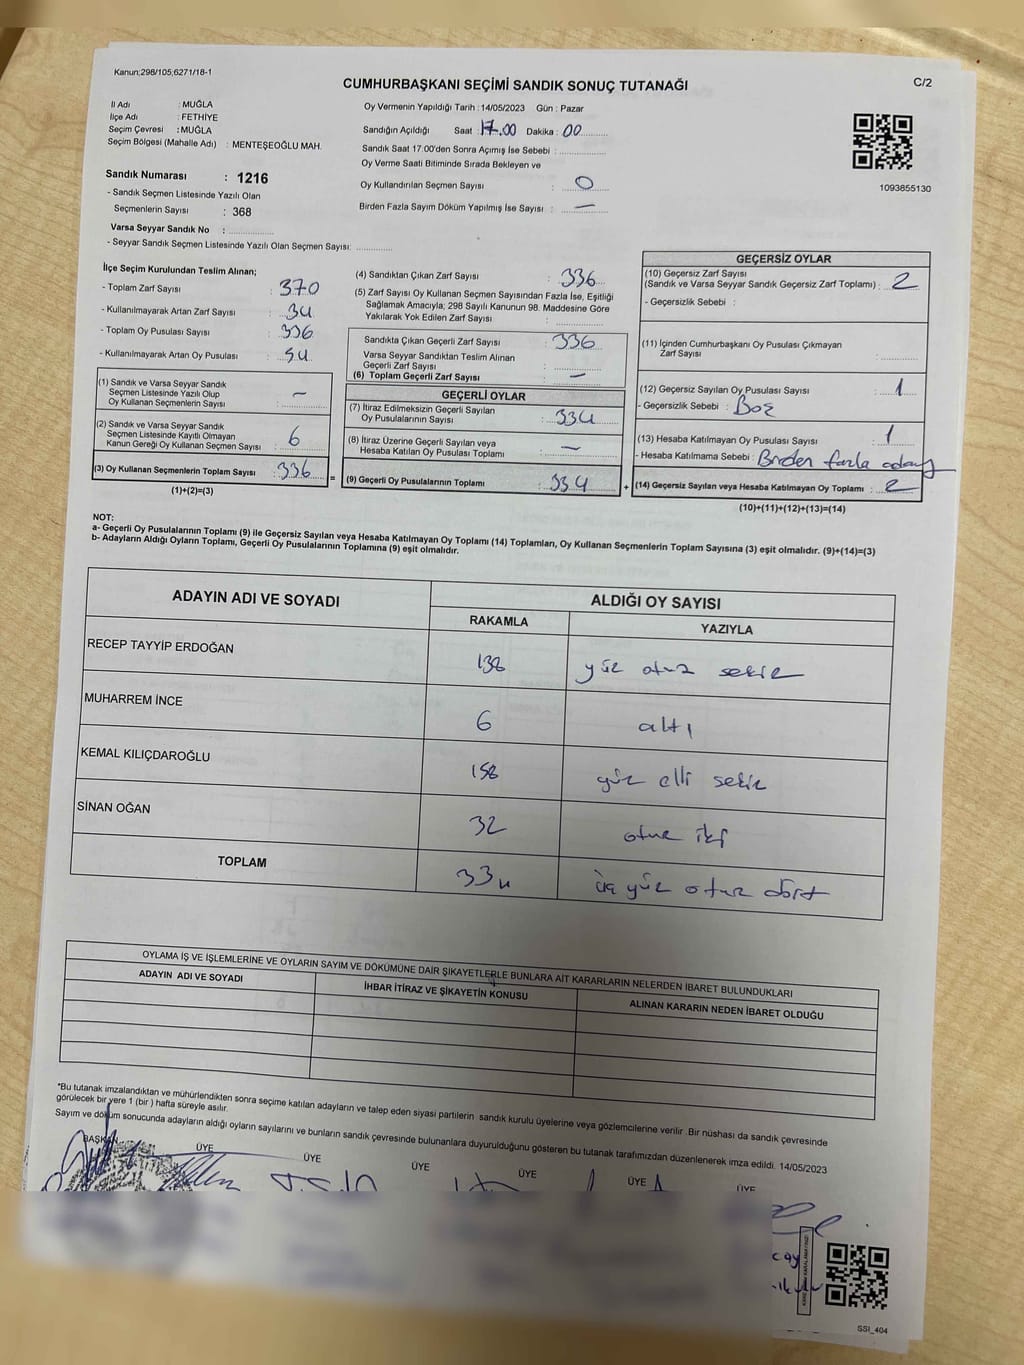 Kanun;298/105;6271/18-1
CUMHURBAŞKANI SEÇİMİ SANDIK SONUÇ TUTANAĞI
C/2
İl Adı : MUĞLA
İlçe Adı : FETHİYE
Seçim Çevresi : MUĞLA
Seçim Bölgesi (Mahalle Adı) : MENTEŞEOĞLU MAH.
Sandık Numarası : 1216
- Sandık Seçmen Listesinde Yazılı Olan
Seçmenlerin Sayısı : 368
Varsa Seyyar Sandık No :
- Seyyar Sandık Seçmen Listesinde Yazılı Olan Seçmen Sayısı:
Oy Vermenin Yapıldığı Tarih : 14/05/2023 Gün : Pazar
Sandığın Açıldığı Saat : 17.00 Dakika : 00
Sandık Saat 17.00'den Sonra Açımış İse Sebebi :
Oy Verme Saati Bitiminde Sırada Bekleyen ve
Oy Kullandırılan Seçmen Sayısı : 0
Birden Fazla Sayım Döküm Yapılmış İse Sayısı : —
1093855130
İlçe Seçim Kurulundan Teslim Alınan;
- Toplam Zarf Sayısı : 370
- Kullanılmayarak Artan Zarf Sayısı : 34
- Toplam Oy Pusulası Sayısı : 336
- Kullanılmayarak Artan Oy Pusulası : 34
(1) Sandık ve Varsa Seyyar Sandık
Seçmen Listesinde Yazılı Olup
Oy Kullanan Seçmenlerin Sayısı : —
(2) Sandık ve Varsa Seyyar Sandık
Seçmen Listesinde Kayıtlı Olmayan
Kanun Gereği Oy Kullanan Seçmen Sayısı : 6
(3) Oy Kullanan Seçmenlerin Toplam Sayısı : 336
(1)+(2)=(3)
(4) Sandıktan Çıkan Zarf Sayısı : 336
(5) Zarf Sayısı Oy Kullanan Seçmen Sayısından Fazla İse, Eşitliği
Sağlamak Amacıyla; 298 Sayılı Kanunun 98. Maddesine Göre
Yakılarak Yok Edilen Zarf Sayısı :
Sandıkta Çıkan Geçerli Zarf Sayısı : 336
Varsa Seyyar Sandıktan Teslim Alınan
Geçerli Zarf Sayısı :
(6) Toplam Geçerli Zarf Sayısı : —
GEÇERLİ OYLAR
(7) İtiraz Edilmeksizin Geçerli Sayılan
Oy Pusulalarının Sayısı : 334
(8) İtiraz Üzerine Geçerli Sayılan veya
Hesaba Katılan Oy Pusulası Toplamı : —
= (9) Geçerli Oy Pusulalarının Toplamı : 334
GEÇERSİZ OYLAR
(10) Geçersiz Zarf Sayısı
(Sandık ve Varsa Seyyar Sandık Geçersiz Zarf Toplamı) : 2
- Geçersizlik Sebebi :
(11) İçinden Cumhurbaşkanı Oy Pusulası Çıkmayan
Zarf Sayısı :
(12) Geçersiz Sayılan Oy Pusulası Sayısı : 1
- Geçersizlik Sebebi : Boş
(13) Hesaba Katılmayan Oy Pusulası Sayısı : 1
- Hesaba Katılmama Sebebi : Birden fazla aday
+ (14) Geçersiz Sayılan veya Hesaba Katılmayan Oy Toplamı : 2
(10)+(11)+(12)+(13)=(14)
NOT:
a- Geçerli Oy Pusulalarının Toplamı (9) ile Geçersiz Sayılan veya Hesaba Katılmayan Oy Toplamı (14) Toplamları, Oy Kullanan Seçmenlerin Toplam Sayısına (3) eşit olmalıdır. (9)+(14)=(3)
b- Adayların Aldığı Oyların Toplamı, Geçerli Oy Pusulalarının Toplamına (9) eşit olmalıdır.
ADAYIN ADI VE SOYADI ALDIĞI OY SAYISI
RAKAMLA YAZIYLA
RECEP TAYYİP ERDOĞAN 138 yüz otuz sekiz
MUHARREM İNCE 6 altı
KEMAL KILIÇDAROĞLU 158 yüz elli sekiz
SİNAN OĞAN 32 otuz iki
TOPLAM 334 üç yüz otuz dört
OYLAMA İŞ VE İŞLEMLERİNE VE OYLARIN SAYIM VE DÖKÜMÜNE DAİR ŞİKAYETLERLE BUNLARA AİT KARARLARIN NELERDEN İBARET BULUNDUKLARI
ADAYIN ADI VE SOYADI İHBAR İTİRAZ VE ŞİKAYETİN KONUSU ALINAN KARARIN NEDEN İBARET OLDUĞU
*Bu tutanak imzalandıktan ve mühürlendikten sonra seçime katılan adayların ve talep eden siyasi partilerin sandık kurulu üyelerine veya gözlemcilerine verilir .Bir nüshası da sandık çevresinde
görülecek bir yere 1 (bir) hafta süreyle asılır.
Sayım ve döküm sonucunda adayların aldığı oyların sayılarını ve bunların sandık çevresinde bulunanlara duyurulduğunu gösteren bu tutanak tarafımızdan düzenlenerek imza edildi. 14/05/2023
BAŞKAN ÜYE ÜYE ÜYE ÜYE ÜYE ÜYE
SSI_404